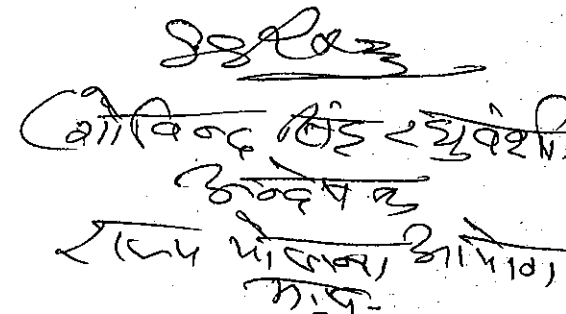 (गोविन्द सिंह रघुवंशी)
अन्वेषक
राज्य योजना आयोग,
म.प्र.